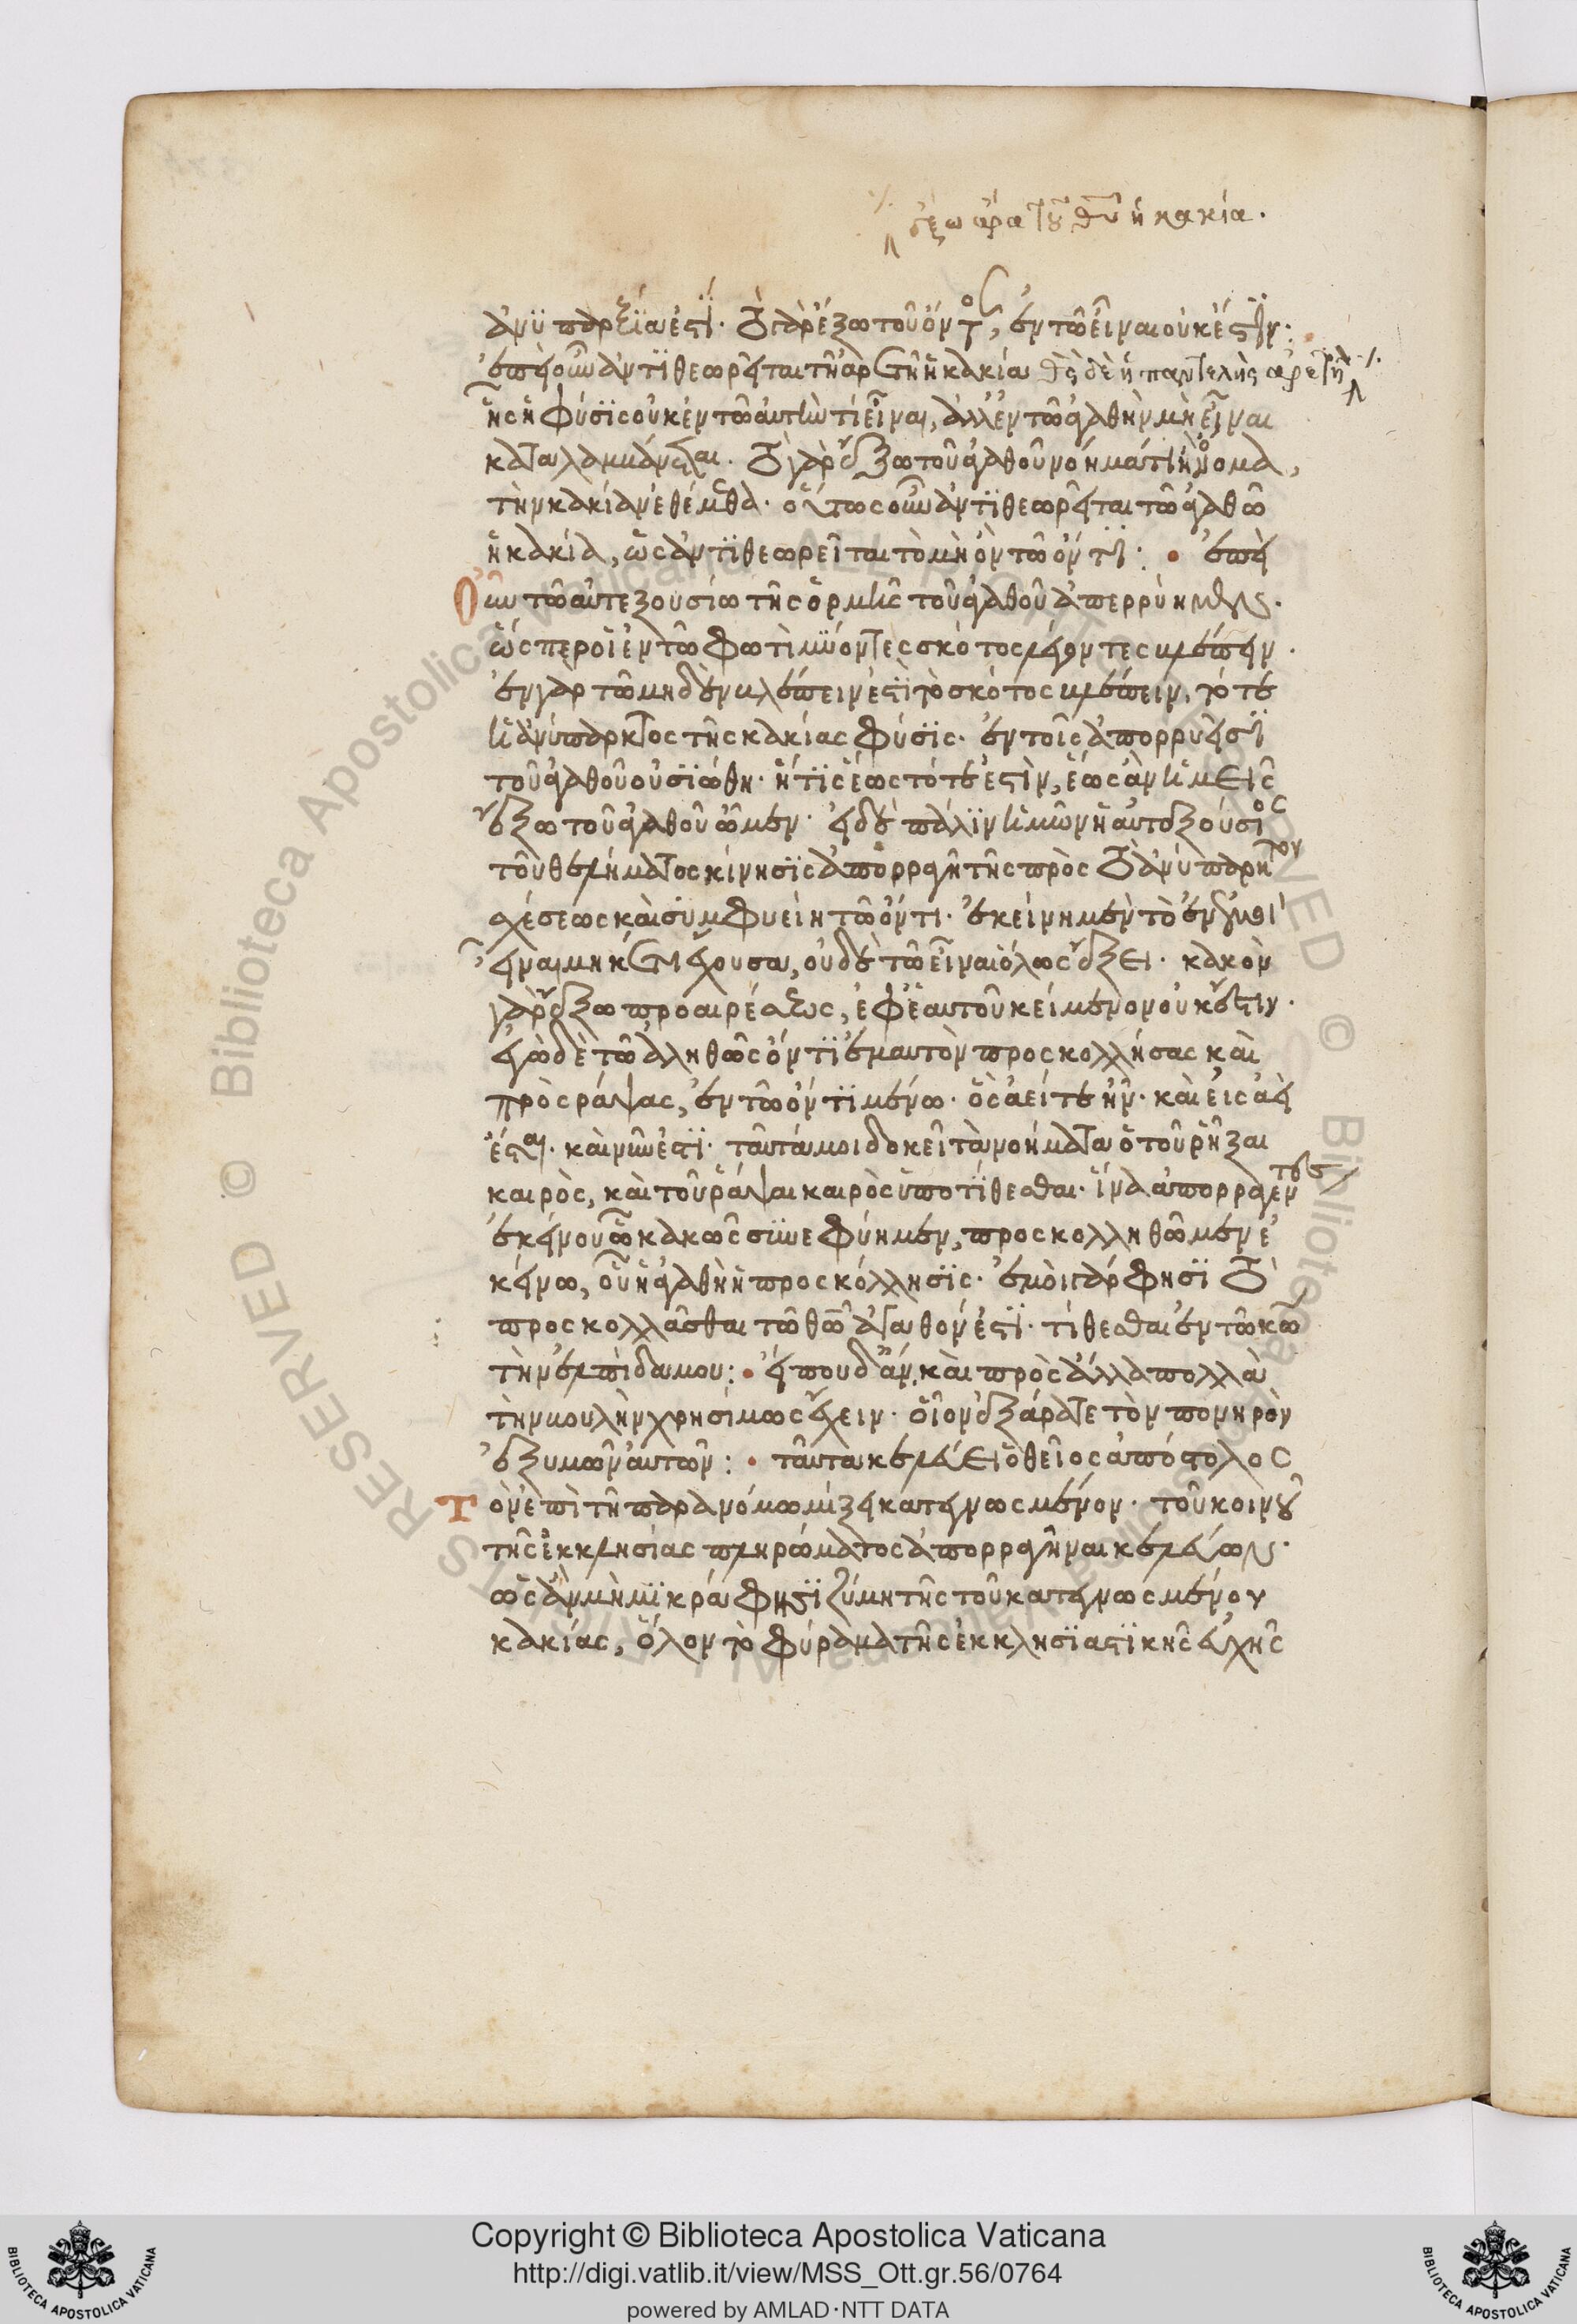 ἔξω ἄρα τοῦ θυ ἡ κακία.
ἀνυπαρξία ἐστί. τὸ γὰρ ἔξω τοῦ ὄντος, ἐν τῶ εἶναι οὐκ ἔστιν.
ἐπεὶ οὖν ἀντιθεωρεῖται τῆ ἀρετῆ ἡ κακία θς δὲ ἡ παντελὴς ἀρετὴ
ἧς ἡ φύσις οὐκ ἐν τῶ αὐτὴν τί εἶναι, ἀλλ' ἐν τῶ ἀγαθὴν μὴ εἶναι
καταλαμβάνεται. τὸ γὰρ ἔξω τοῦ ἀγαθοῦ νοήματι ὄνομα,
τὴν κακίαν ἐθέμεθα. οὕτως οὖν ἀντιθεωρεῖται τῶ ἀγαθῶ
ἡ κακία, ὡς ἀντιθεωρεῖται τὸ μὴ ὂν τῶ ὄντι: ἐπεὶ
Οὖν τῶ αὐτεξουσίω τῆς ὁρμῆς τοῦ ἀγαθοῦ ἀπερρύημεν.
ὥσπερ οἱ ἐν τῶ φωτὶ μύοντες σκότος λέγοντες βλέπειν.
ἐν γὰρ τῶ μηδὲν βλέπειν ἐστὶ τὸ σκότος βλέπειν, τότε
ἡ ἀνύπαρκτος τῆς κακίας φύσις. ἐν τοῖς ἀπορρυεῖσι
τοῦ ἀγαθοῦ οὐσιώθη. ἥτις ἕως τότε ἐστὶν, ἕως ἂν ἡμεῖς
ἔξω τοῦ ἀγαθοῦ ὦμεν. εἰ δὲ πάλιν ἡμῶν ἡ αὐτεξούσιος
τοῦ θελήματος κίνησις ἀπορραγῆ τῆς πρὸς τὸ ἀνύπαρκτον
σχέσεως καὶ συμφυείη τῶ ὄντι. ἐκείνη μὲν τὸ ἐν ἐμοὶ
εἶναι μηκέτι ἔχουσα, οὐδὲ τῶ εἶναι ὅλως ἕξει. κακὸν
γὰρ ἔξω προαιρέσεως, ἐφ' ἑαυτοῦ κείμενον οὐκ ἔστιν.
ἐγὼ δὲ τῶ ἀληθῶς ὄντι ἐμαυτὸν προσκολλήσας καὶ
προσράψας, ἐν τῶ ὄντι μένω. ὃς ἀεί τε ἦν. καὶ εἰς ἀεὶ
ἔσται. καὶ νῦν ἐστι. ταῦτά μοι δοκεῖ τὰ νοήματα ὁ τοῦ ῥῆξαι
καιρὸς, καὶ τοῦ ῥάψαι καιρὸς ὑποτίθεσθαι. ἵνα ἀπορραγέντες
ἐκείνου ὧ κακῶς συνεφύημεν, προσκολληθῶμεν ἐ
κείνω, οὗ ἡ ἀγαθὴ ἡ προσκόλλησις. ἐμοὶ γάρ φησι τὸ
προσκολλᾶσθαι τῶ θῶ ἀγαθόν ἐστι. τίθεσθαι ἐν τῶ κω
τὴν ἐλπίδα μου: εἴποι δ' ἄν, καὶ πρὸς ἄλλα πολλὰ
τὴν βουλὴν χρησίμως ἔχειν. οἷον ἐξάρατε τὸν πονηρὸν
ἐξ ὑμῶν αὐτῶν: ταῦτα κελεύει ὁ θεῖος ἀπόστολος
Τὸν ἐπὶ τῆ παρανόμω μίξει κατεγνωσμένον. τοῦ κοινοῦ
τῆς ἐκκλησίας πληρώματος ἀπορραγῆναι κελεύων.
ὡς ἂν μὴ μικρά φησι ζύμη τῆς τοῦ κατεγνωσμένου
κακίας, ὅλον τὸ φύραμα τῆς ἐκκλησιαστικῆς εὐχῆς
Copyright © Biblioteca Apostolica Vaticana
http://digi.vatlib.it/view/MSS_Ott.gr.56/0764
powered by AMLAD·NTT DATA